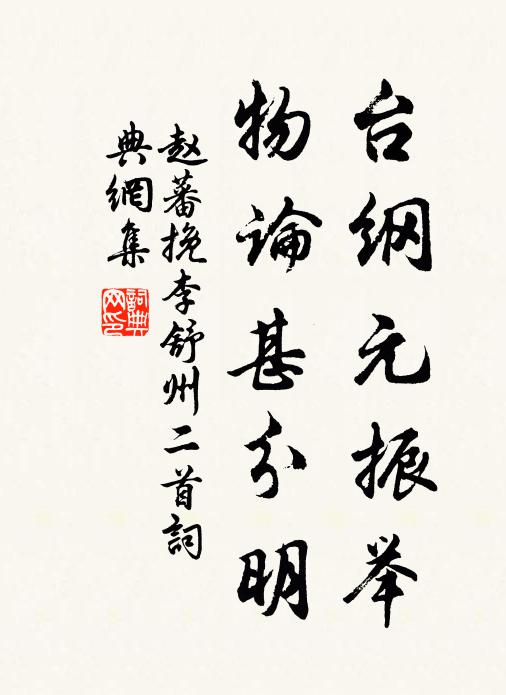 台纲元振举
物论甚分明
赵蕃挽李舒州二首词
典網集
詞典
网印